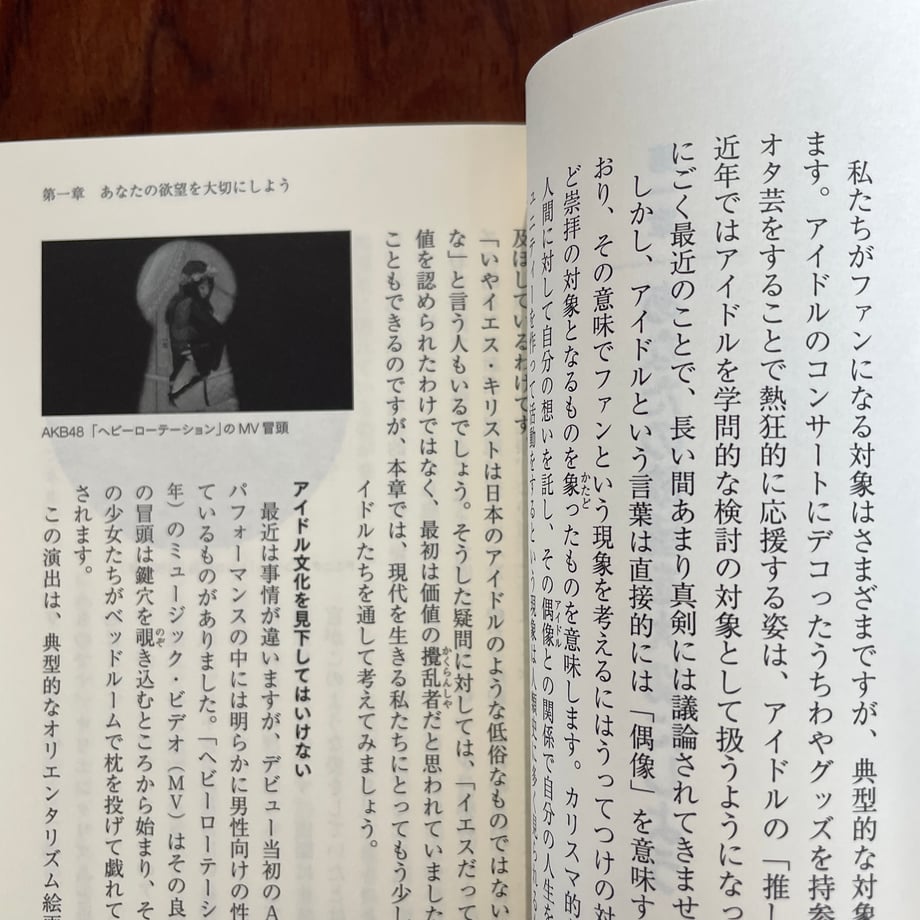 私たちがファンになる対象はさまざまですが、典型的な対象
ます。アイドルのコンサートにデコったうちわやグッズを持参
オタ芸をすることで熱狂的に応援する姿は、アイドルの「推し
近年ではアイドルを学問的な検討の対象として扱うようになっ
にごく最近のことで、長い間あまり真剣には議論されてきませ
しかし、アイドルという言葉は直接的には「偶像」を意味す
おり、その意味でファンという現象を考えるにはうってつけの対
ど崇拝の対象となるものを象ったものを意味します。カリスマ的
かたど
人間に対して自分の想いを託し、その偶像との関係で自分の人生を
アイドル
ュニティーを作って活動をするという現象は人類史に多く見られる
第一章 あなたの欲望を大切にしよう
及ぼしているわけです。
「いやイエス・キリストは日本のアイドルのような低俗なものではない
な」と言う人もいるでしょう。そうした疑問に対しては、「イエスだって
値を認められたわけではなく、最初は価値の攪乱者だと思われていました
かくらんしゃ
こともできるのですが、本章では、現代を生きる私たちにとってもう少し
イドルたちを通して考えてみましょう。
AKB48「ヘビーローテーション」のMV冒頭
アイドル文化を見下してはいけない
最近は事情が違いますが、デビュー当初のA
パフォーマンスの中には明らかに男性向けの性
ているものがありました。「ヘビーローテーシ
年）のミュージック・ビデオ（MV）はその良
の冒頭は鍵穴を覗き込むところから始まり、そ
のぞ
の少女たちがベッドルームで枕を投げて戯れて
されます。
この演出は、典型的なオリエンタリズム絵画